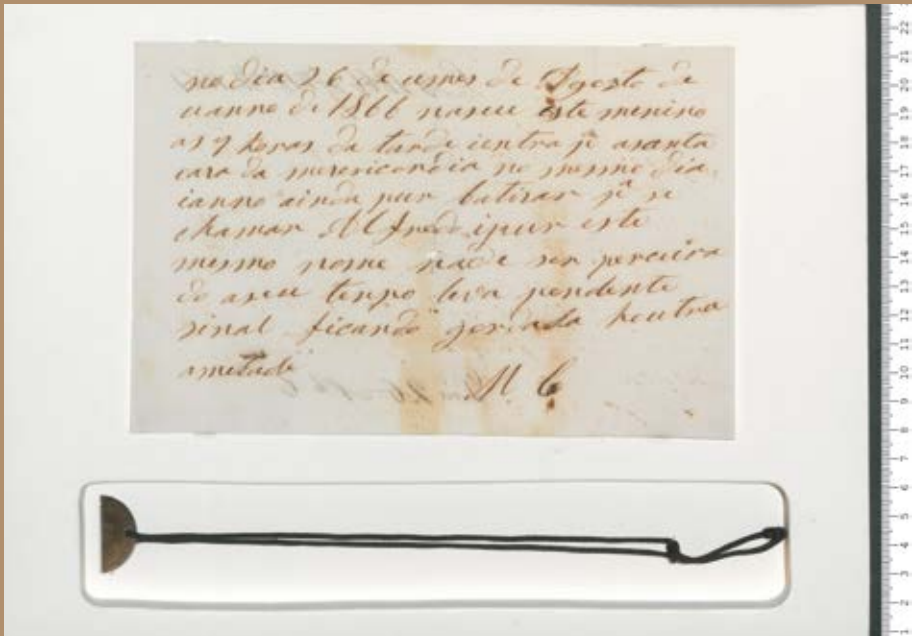 no dia 26 de umes de Agosto de
uanno de 1866 nasceu este menino
as 9 horas da tarde ientra pª asanta
caza da mizericordia no mesmo dia
ianno ainda pur batizar pª se
chamar Alfredo ipur este
mesmo nome
do aseu tenpo leva pendente
sinal ficando houtra
ametade
M C
22
21
20
19
18
17
16
15
14
13
12
11
10
9
8
7
6
5
4
3
2
1